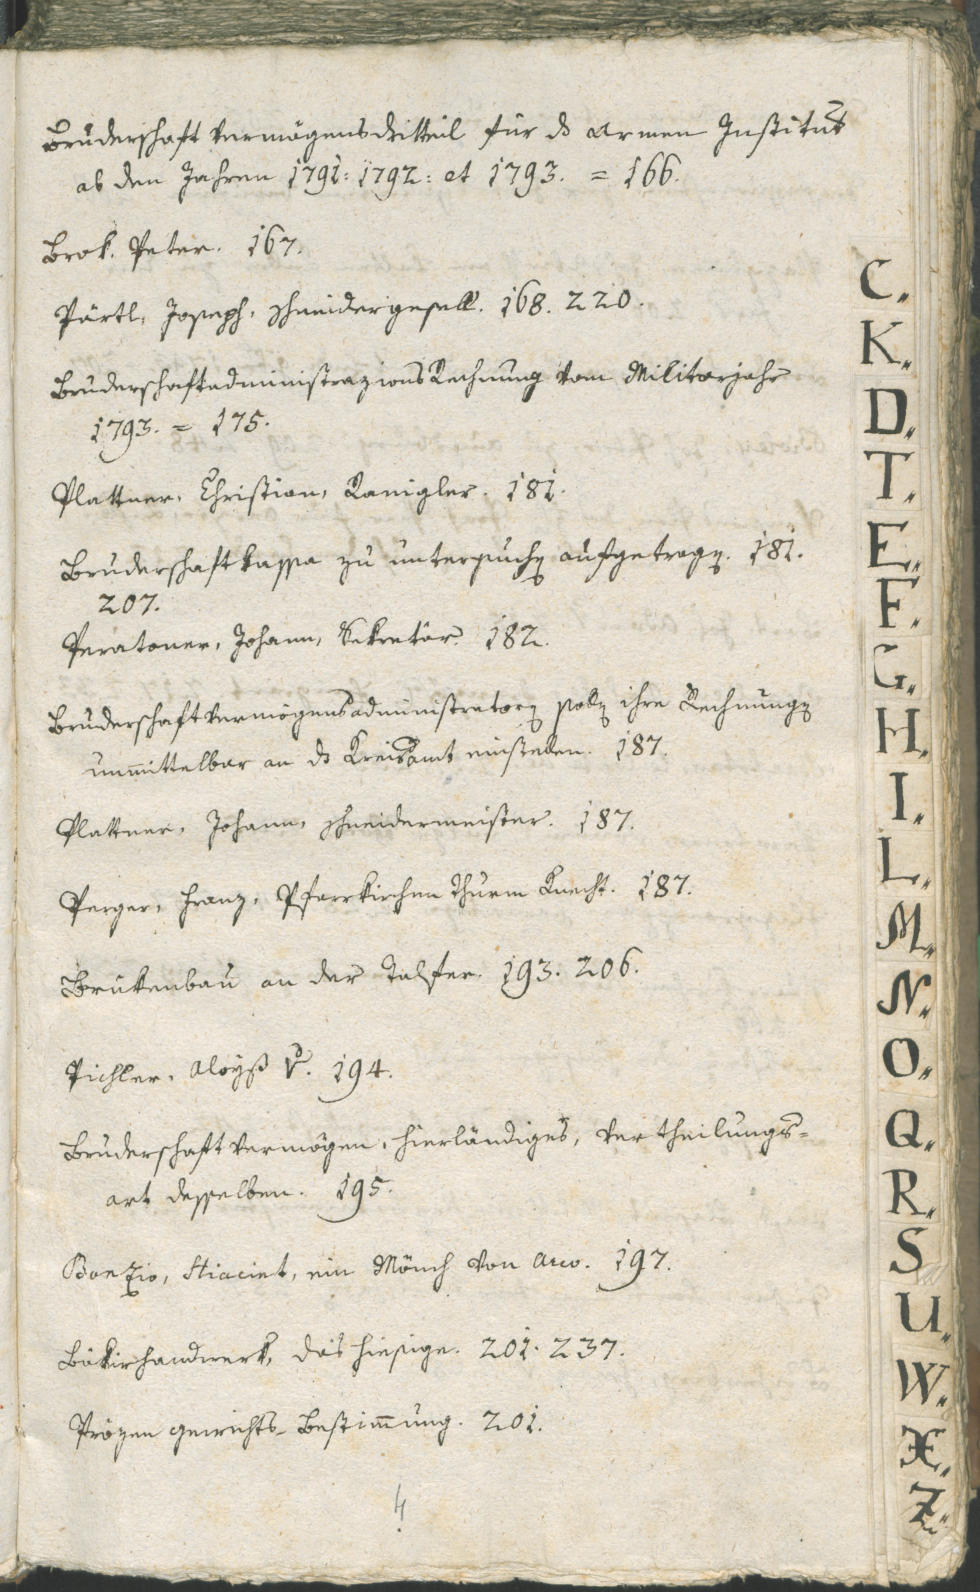 Bruderschaft vermögensdritteil für ds armen Institut
ab den Jahren 1791: 1792: et 1793. = 166.
Brok. Peter. 167.
Pärtl, Joseph, schneidergesell. 168. 220.
BruderschaftadministrazionsRechnung vom Militarjahr
1793. = 175.
Plattner, Christian, 181.
Bruderschaftkassa zu untersuchen aufgetragen. 181.
207.
Peratoner, Johann, Sekretär. 182.
Bruderschaftvermögensadministratoren sollen ihre Rechnungen
unmittelbar an ds Kreisamt einstellen. 187.
Plattner, Johann, schneidermeister. 187.
Perger, Franz, Pfarrkirchen Thurm Knecht. 187.
Brükenbau an der Talfer. 193. 206.
Pichler, Aloyß v. 194.
Bruderschaft vermögen, hierländiges, vertheilungs-
art desselben. 195.
Bonzio, Hiacint, ein Mönch von Arco. 197.
Bäkirhandwerk, das hiesige. 201. 237.
Präzen gewichts-Bestimmung. 201.
4
C.
K.
D.
T.
E.
F.
G.
H.
I.
L.
M.
N.
O.
Q.
R.
S
U.
W.
X.
Z.